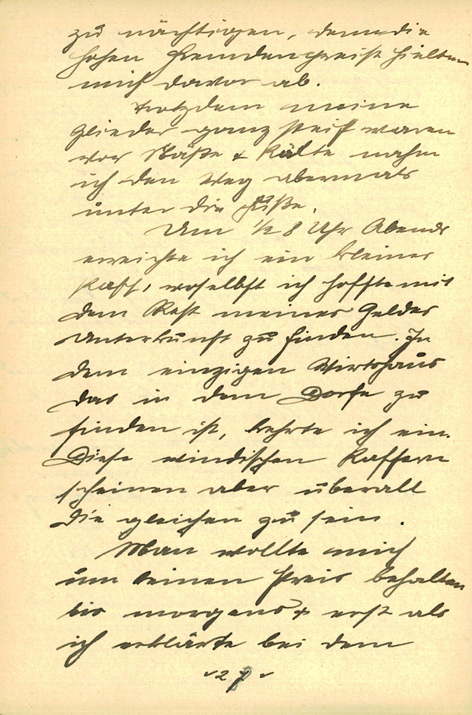 zu nächtigen, denn die
hohen Fremdenpreise hielten
mich davor ab.
Trotzdem meine
Glieder ganz steif waren
vor Nässe & Kälte nahm
ich den Weg abermals
unter die Füße.
Um ½ 8 Uhr Abends
erreichte ich ein kleines
Kaff, woselbst ich hoffte mit
dem Rest meines Geldes
Unterkunft zu finden. In
dem einzigen Wirtshaus
das in dem Dorfe zu
finden ist, kehrte ich ein.
Diese windischen Kaffern
scheinen aber überall
die gleichen zu sein.
Man wollte mich
um keinen Preis behalten
bis morgens & erst als
ich erklärte bei dem